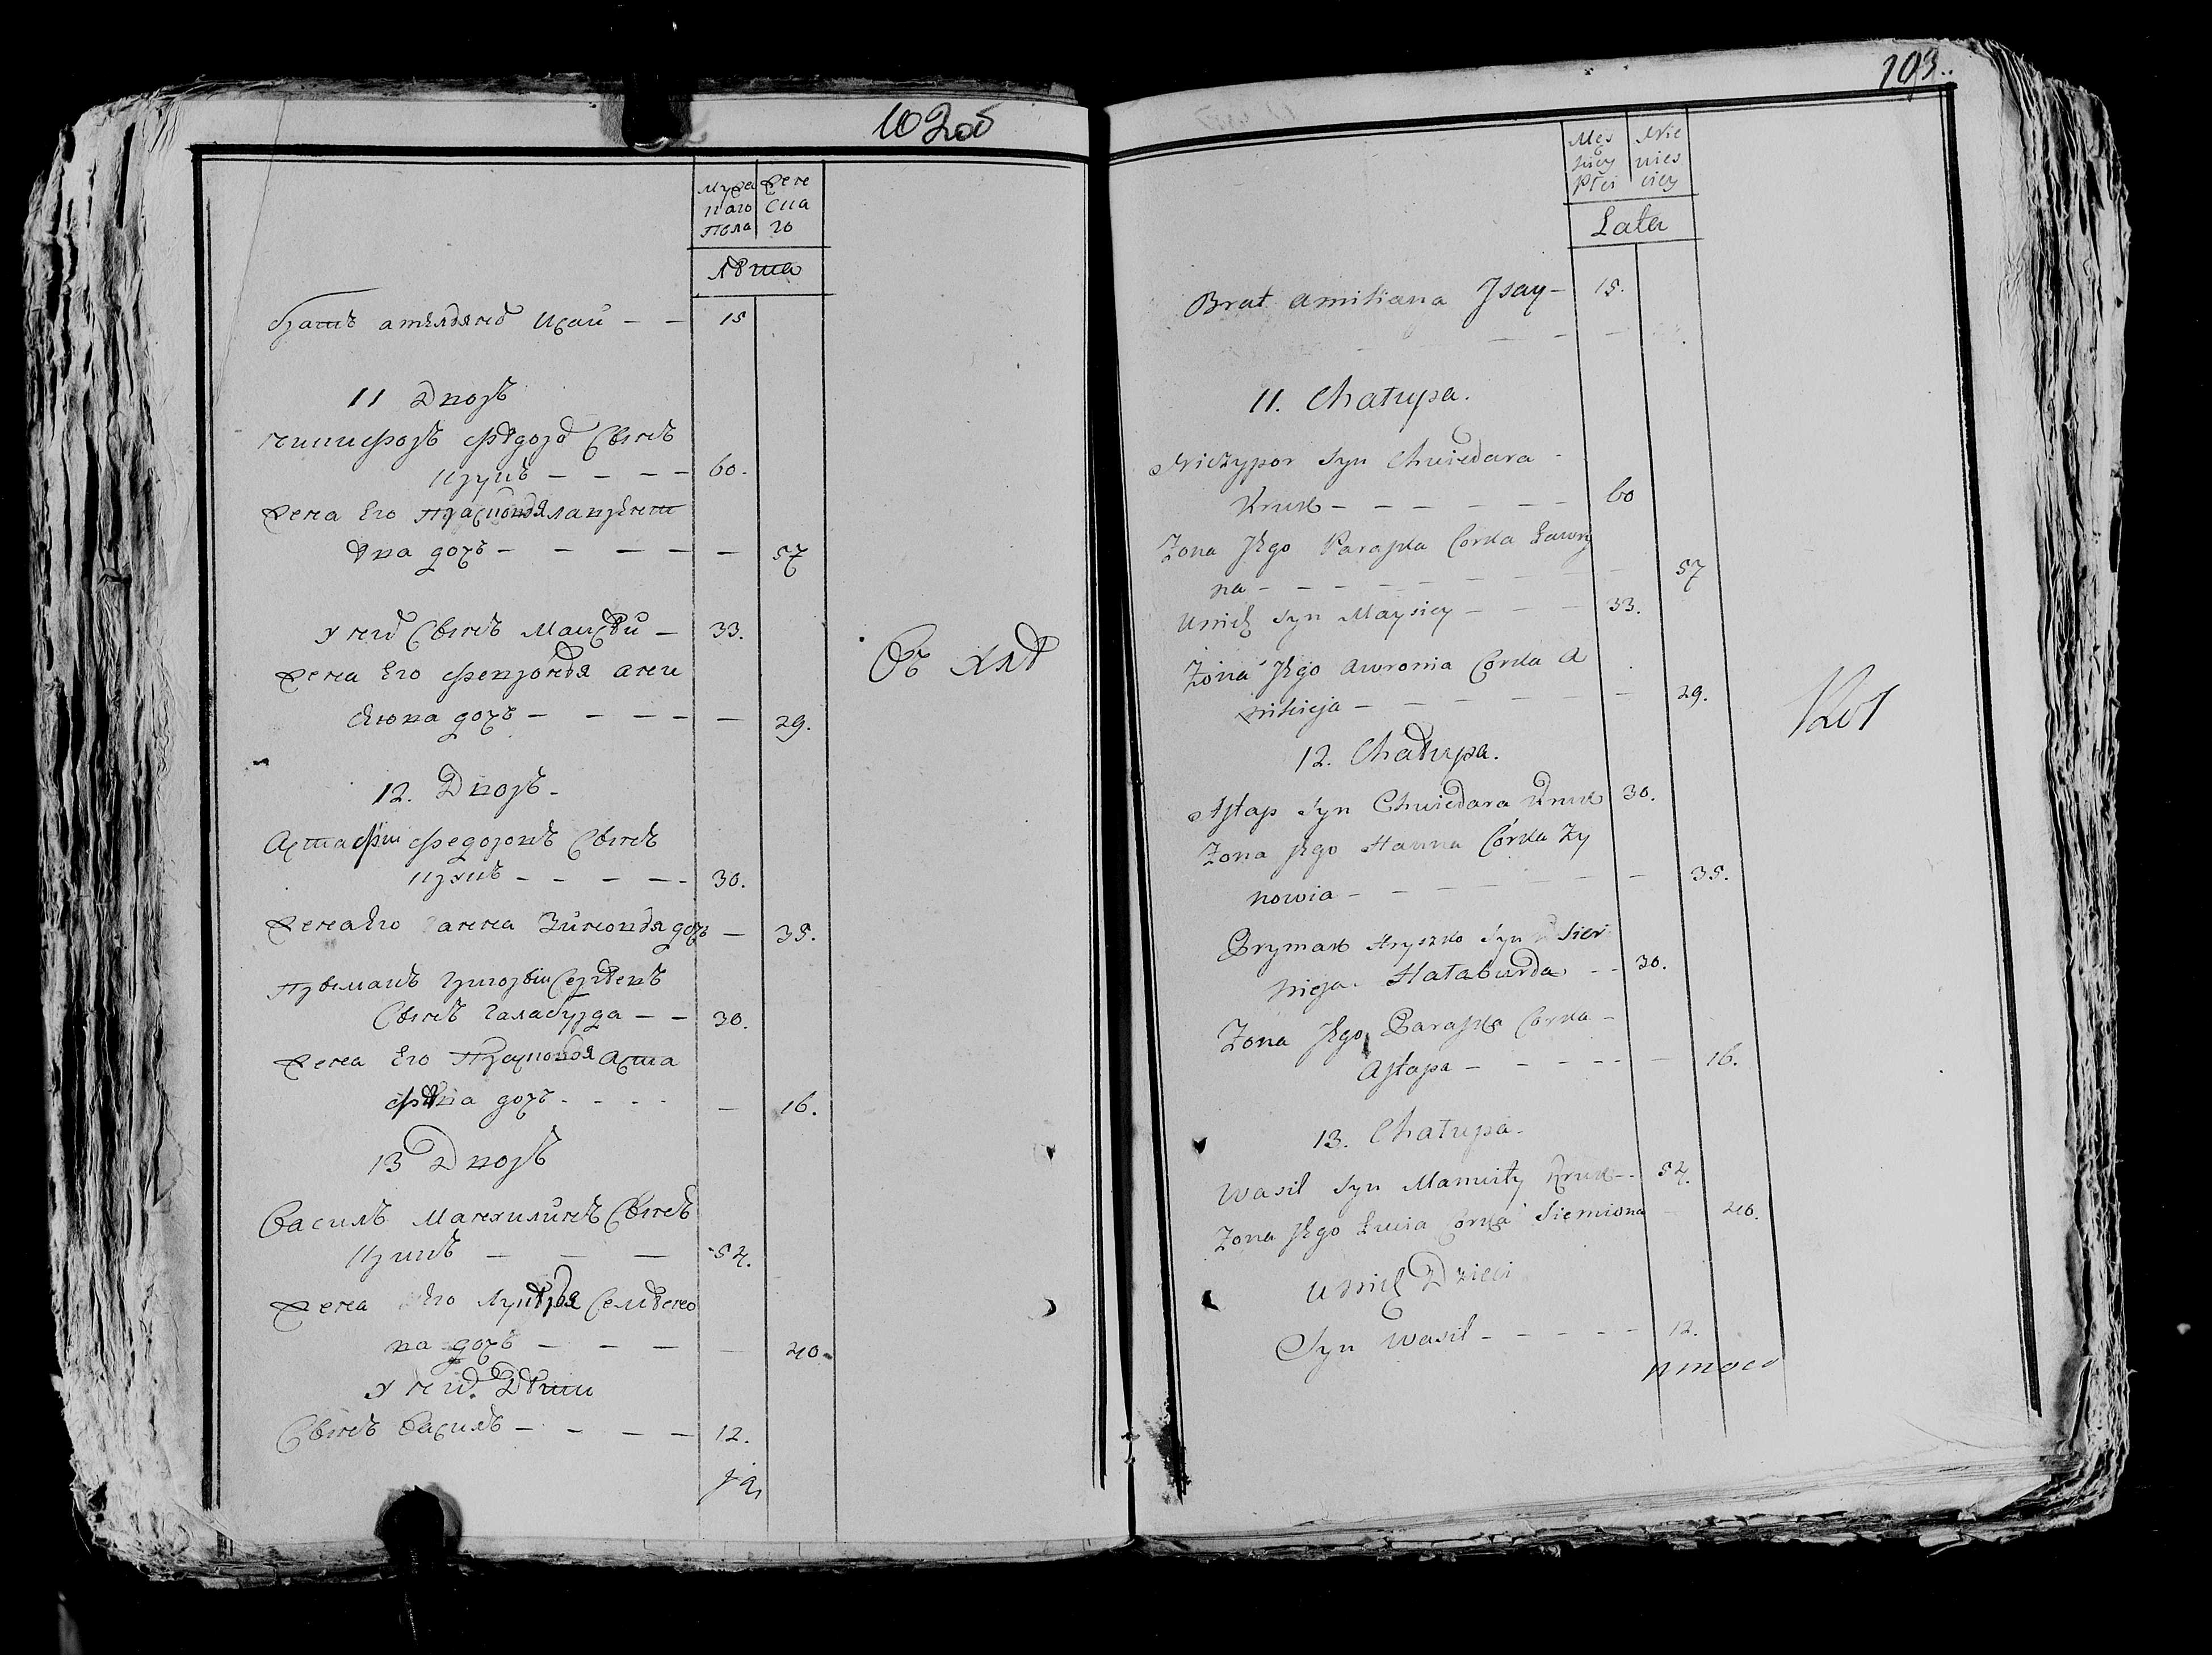 102 об
Мужескаго Пола
Женскаго
Лѣта
братъ Исай — — 15
11 Дворъ
Ничипоръ Федоровъ Сынъ
Крукъ — — — — 60.
Жена Его Прасковья Лаврент
ѣва дочь — — — — — 57
У нихъ Сынъ Маисѣй — 33.
Жена Его Февронья
дочь — — — — — 29.
12. Дворъ.
Астафій Федоровъ Сынъ
Крукъ — — — — — 30.
Жена Его Ганна Зиновья дочь — 35.
Прымакъ Григорій Сергѣевъ
Сынъ Галабурда — — 30.
Жена Его Прасковья Аста
фѣва дочь - - - - — 16.
13 Дворъ
Василь Мануиловъ Сынъ
Крукъ — — — 54.
Жена Его Семѣно
ва дочь — — — — 40.
У нихъ Дѣти
Сынъ Василь — — — — — 12.
103.
Męs kiey Płci
Nie wies ciey
Lata
Brat Amiliana Jsay — 15.
11. Chałupa.
Niczypor Syn Chwiedara -
Kruk — — — — — — 60
Zona Jego Paraska Corka Ławry
na — — — — — — — 57
U nich Syn Maysiey — — — 33.
Zona Jego Awronia Corka A
— — — — — — 29.
12. Chałupa.
Astap Syn Chwiedara Kruk 30.
Zona Jego Hanna Córka Zy
nowia — — — — — — — 35.
Prymak Hryszko Syn Sier
hieja Hałaburda - - 30.
Zona Jego Paraska Corka —
Astapa — — — — — — 16.
13. Chałupa.
Wasil Syn Manuiły Kruk - - 54.
Zona Jego Corka Siemiona 40.
U nich Dzieci
Syn Wasil — — — — — 12.